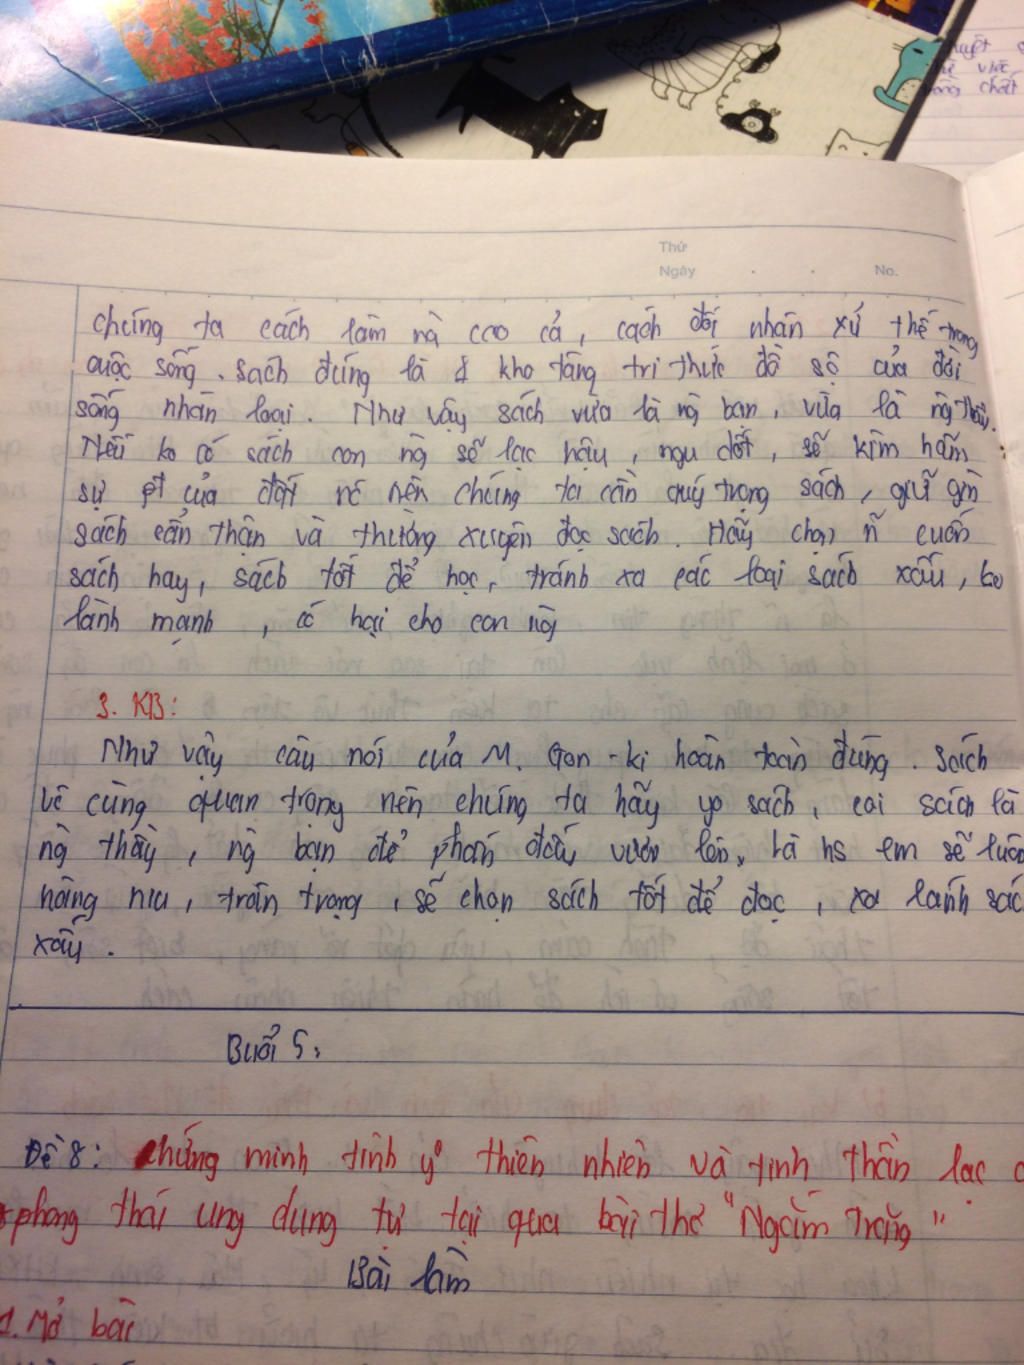 Thứ
Ngày . . No.
chúng ta cách làm ng cao cả, cách đối nhân xử thế trong
cuộc sống. Sách đúng là 1 kho tàng tri thức đồ sộ của đời
sống nhân loại. Như vậy sách vừa là ng bạn, vừa là ng thầy.
Nếu ko có sách con ng sẽ lạc hậu, ngu dốt, sẽ kìm hãm
sự pt của đất nc nên chúng ta cần quý trọng sách, giữ gìn
sách cẩn thận và thường xuyên đọc sách. Hãy chọn ~ cuốn
sách hay, sách tốt để học, tránh xa các loại sách xấu, ko
lành mạnh, có hại cho con ng
3. KB:
Như vậy câu nói của M. Gon-ki hoàn toàn đúng. Sách
vô cùng quan trọng nên chúng ta hãy yo sách, coi sách là
ng thầy, ng bạn để phấn đấu vươn lên. Là hs em sẽ luôn
nâng niu, trân trọng, sẽ chọn sách tốt để đọc, xa lánh sác
xấu.
Buổi 5:
Đề 8: Chứng minh tình yo thiên nhiên và tinh thần lạc
phong thái ung dung tự tại qua bài thơ "Ngắm trăng"
Bài làm
1. Mở bài